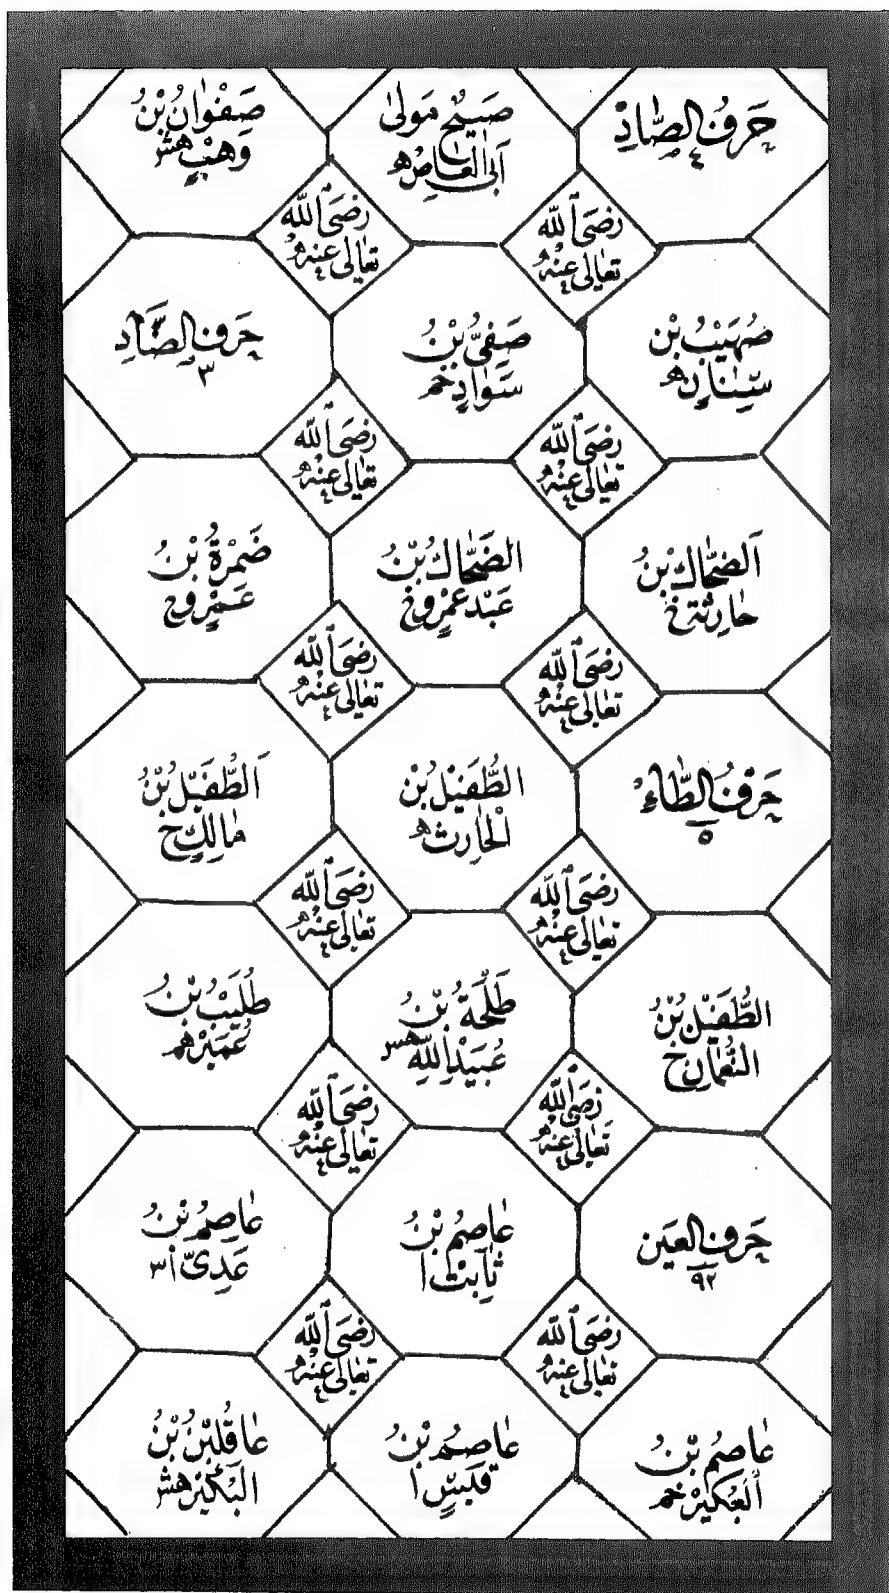 حَرْفُ الصَّادِ
٤
صَبِيْحٌ مَوْلٰى
اَبِى الْعَاصِ ھ
صَفْوَانُ بْنُ
وَهْبٍ هش
رَضِىَ اللّٰه
تَعَالٰى عَنْهُ
رَضِىَ اللّٰه
تَعَالٰى عَنْهُ
صُهَيْبُ بْنُ
سِنَانٍ ھ
صَفِىُّ بْنُ
سَوَادٍ خم
حَرْفُ الضَّادِ
٣
رَضِىَ اللّٰه
تَعَالٰى عَنْهُ
رَضِىَ اللّٰه
تَعَالٰى عَنْهُ
اَلضَّحَّاكُ بْنُ
حَارِثَةَ خ
الضَّحَّاكُ بْنُ
عَبْدِ عَمْرٍو خ
ضَمْرَةُ بْنُ
عَمْرٍو خ
رَضِىَ اللّٰه
تَعَالٰى عَنْهُ
رَضِىَ اللّٰه
تَعَالٰى عَنْهُ
حَرْفُ الطَّاءِ
٥
الطُّفَيْلُ بْنُ
الْحَارِثِ ھ
اَلطُّفَيْلُ بْنُ
مَالِكٍ خ
رَضِىَ اللّٰه
تَعَالٰى عَنْهُ
رَضِىَ اللّٰه
تَعَالٰى عَنْهُ
الطُّفَيْلُ بْنُ
النُّعْمَانِ خ
طَلْحَةُ بْنُ
عُبَيْدِ اللّٰهِ هس
طُلَيْبُ بْنُ
عُمَيْرٍ هم
رَضِىَ اللّٰه
تَعَالٰى عَنْهُ
رَضِىَ اللّٰه
تَعَالٰى عَنْهُ
حَرْفُ الْعَيْن
٩٢
عَاصِمُ بْنُ
ثَابِتٍ ا
عَاصِمُ بْنُ
عَدِىٍّ اس
رَضِىَ اللّٰه
تَعَالٰى عَنْهُ
رَضِىَ اللّٰه
تَعَالٰى عَنْهُ
عَاصِمُ بْنُ
الْعُكَيْرِ خم
عَاصِمُ بْنُ
قَيْسٍ ا
عَاقِلُ بْنُ بْنُ
الْبُكَيْرِ هش